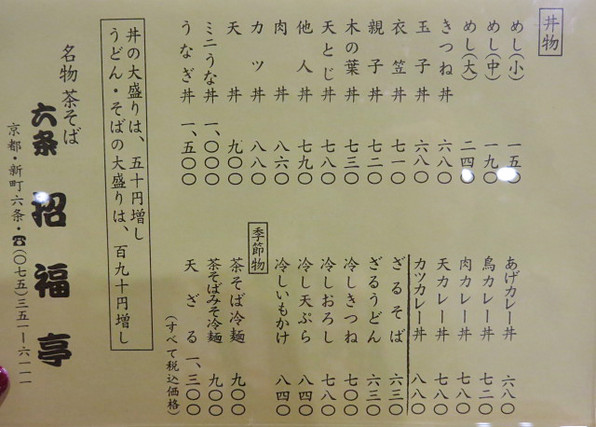 丼物
めし(小) 一五〇
めし(中) 一九〇
めし(大) 二四〇
きつね丼 六八〇
玉子丼 六八〇
衣笠丼 七一〇
親子丼 七二〇
木の葉丼 七三〇
天とじ丼 七八〇
他人丼 七九〇
肉丼 八六〇
カツ丼 八八〇
天丼 九〇〇
ミニうな丼 一、〇〇〇
うなぎ丼 一、五〇〇
あげカレー丼 六八〇
鳥カレー丼 七二〇
肉カレー丼 七八〇
天カレー丼 七八〇
カツカレー丼 八八〇
ざるそば 六三〇
ざるうどん 六三〇
冷しきつね 七〇〇
冷しおろし 七八〇
冷し天ぷら 八四〇
冷しいもかけ 八四〇
季節物
茶そば冷麺 九〇〇
茶そばみそ冷麺 九〇〇
天ざる 一、三〇〇
(すべて税込価格)
丼の大盛りは、五十円増し
うどん・そばの大盛りは、百九十円増し
名物 茶そば
六条 招福亭
京都・新町六条・☎(〇七五)三五一ー六一一一